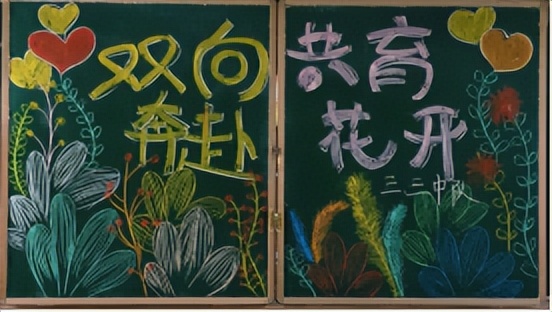 双向
奔赴
共育
花开
三三中队